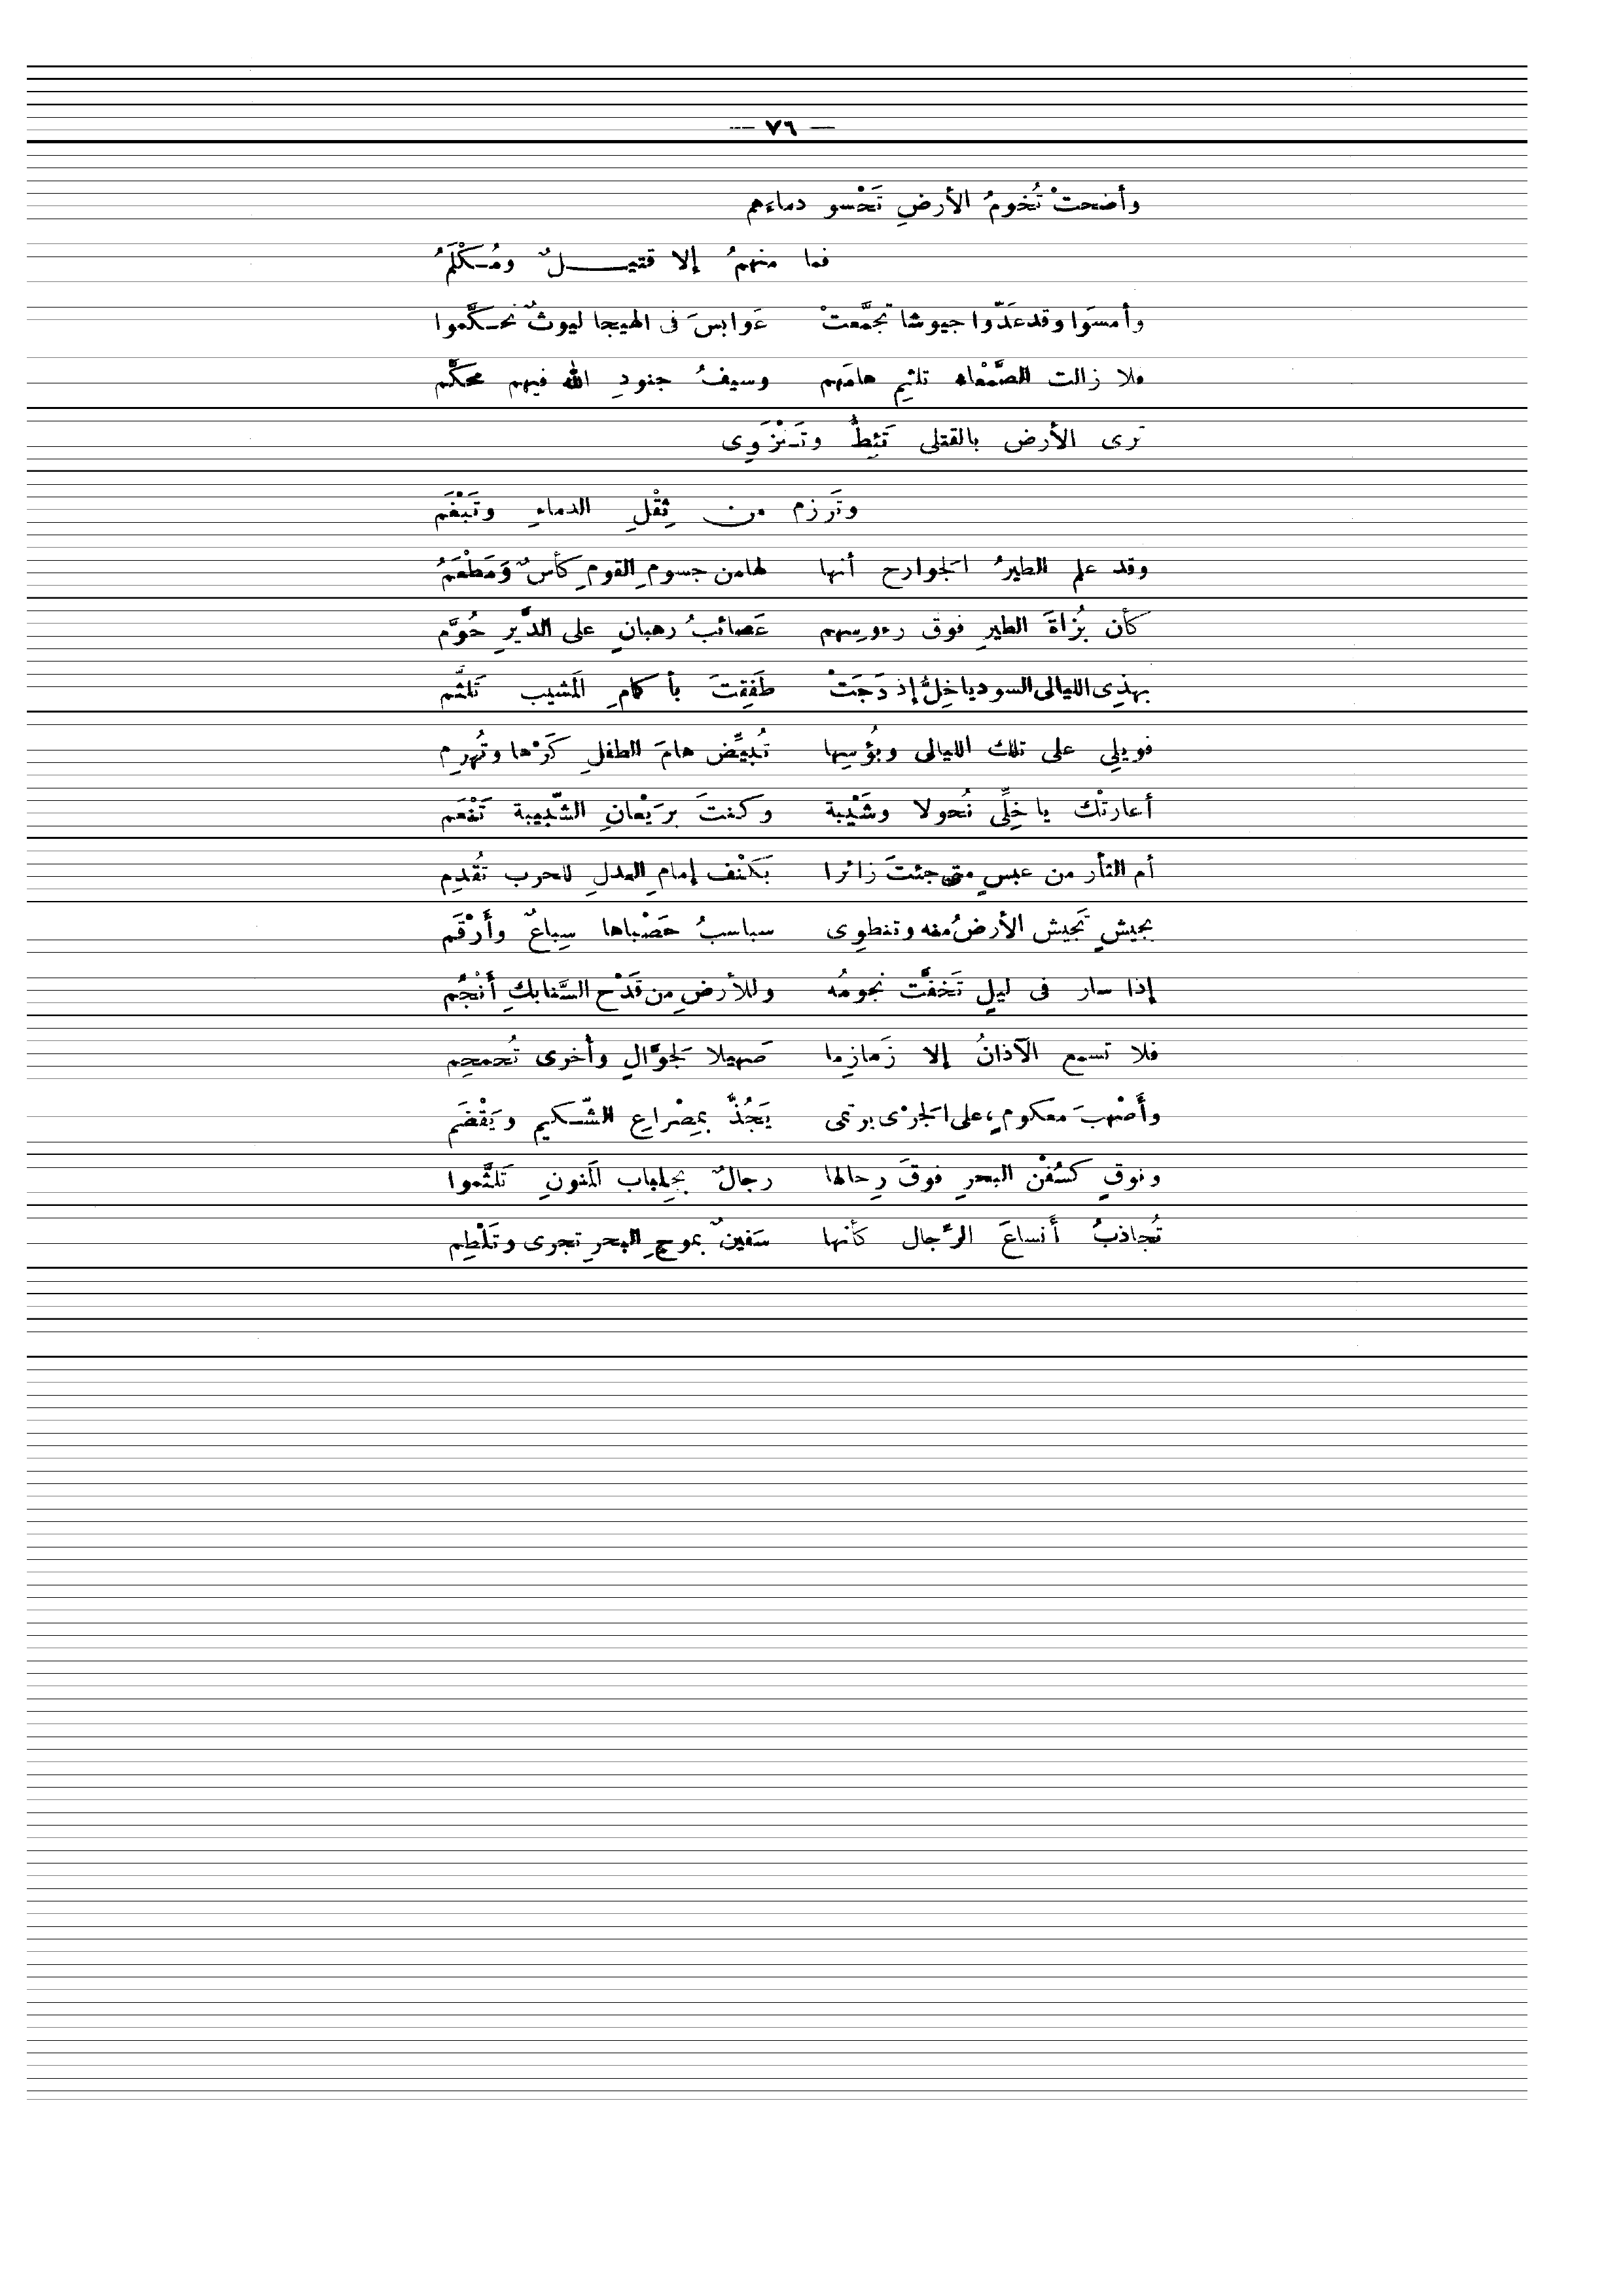 — ٧٦ —
وأضحتْ تُخومُ الأرضِ تَحْسو دماءهم
فما منهمُ إلا قتيــــلٌ ومُـكْلَمُ
وأمسَوا وقد عَدّوا جيوشا تجمَّعتْ عَوابسَ فى الهيجا ليوثٌ تحـكَّموا
فلا زالت الصَّمْغاء تلثِم هامَهم وسيفُ جنودِ الله فيهم محكَّم
ترى الأرض بالقتلى تَئِطُّ وتَـنْزَوِى
وتَرزم من ثِقْلِ الدماءِ وتَبْغَم
وقد علم الطيرُ الجَوارح أنها لها من جسومِ القومِ كأسٌ وَمَطْعَمُ
كأن بُزاةَ الطيرِ فوق رءوسِهم عَصائبُ رهبانٍ على الدَّيرِ حُوَّم
بهذِى الليالى السود ياخِلُّ إذ دَجَتْ طَفِقتَ بأكمامِ المَشيب تَلثَّم
فويلِي على تلك الليالى وبُؤسِها تُبيِّض هامَ الطفلِ كَرْها وتُهرِم
أعارتْك يا خِلِّى نُحولا وشَيْبة وكنتَ برَيْعانِ الشّبيبة تَنْعَم
أم الثأر من عبسٍ متى جئتَ زائرا بَكَنْف إمامِ العدلِ للحرب تُقدِم
بجيشٍ تَجيش الأرضُ منه وتنطوِى سباسبُ حَصْباها سِباعٌ وأَرْقَم
إذا سار فى ليلٍ تَخفَّت نجومُه وللأرضِ من قَدْح السَّنابكِ أَنْجُم
فلا تسمع الآذانُ إلا زَمازِما صَهيلا لجَوّالٍ وأخرى تُحمحِم
وأَصْهبَ معكومٍ، على الجَرْى يرتمى يَجُذّ بمِصْراعِ الشّـكيم ويَقْضَم
ونوقٍ كسُفْن البحرِ فوقَ رِحالها رجالٌ بجِلباب المَنونِ تَلثَّموا
تُجاذبُ أَنساعَ الرِّجال كأنها سَفينٌ بموجِ البحرِ تجرى وتَلْطِم